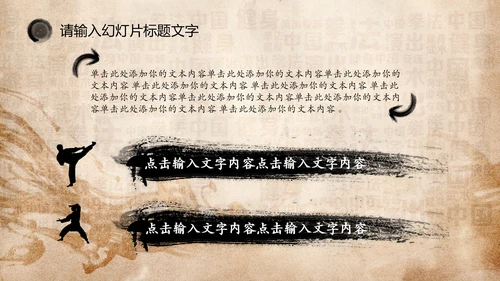 请输入幻灯片标题文字
单击此处添加你的文本内容单击此处添加你的文本内容单击此处添加你的
文本内容 单击此处添加你的文本内容 单击此处添加你的文本内容 单击此
处添加你的文本内容单击此处添加你的文本内容单击此处添加你的文本内
容单击此处添加你的文本内容 单击此处添加你的文本内容 。
点击输入文字内容点击输入文字内容
点击输入文字内容点击输入文字内容